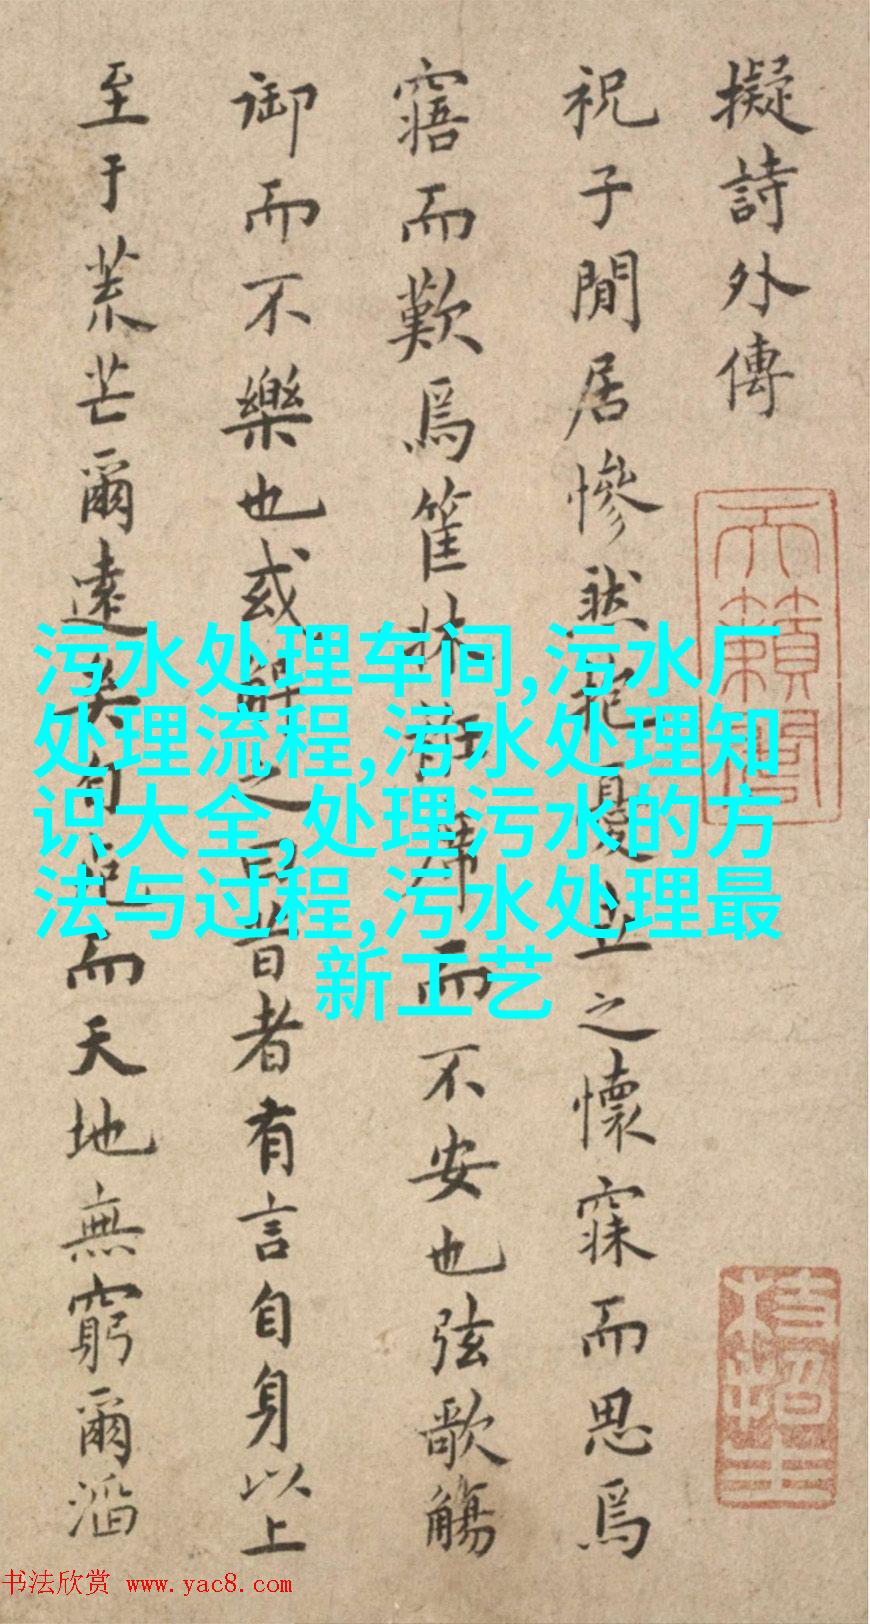 擬詩外傳
祝子閒居慘然抱憂立之懷寐而思焉
寤而歎焉筐牀衽席而不安也弦歌觴
御而不樂也或解之曰昔者有言自身以上
至于荒芒爾遠矣而天地無窮爾滔
天籟閣
枝指生
污水处理车间,污水厂
处理流程,污水处理知
识大全,处理污水的方
法与过程,污水处理最
新工艺
书法欣赏 www.yac8.com